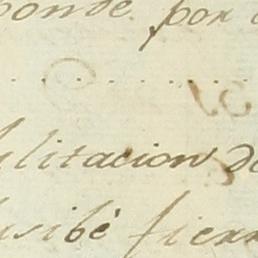 ponde por
ilitacion de
usibè fierr